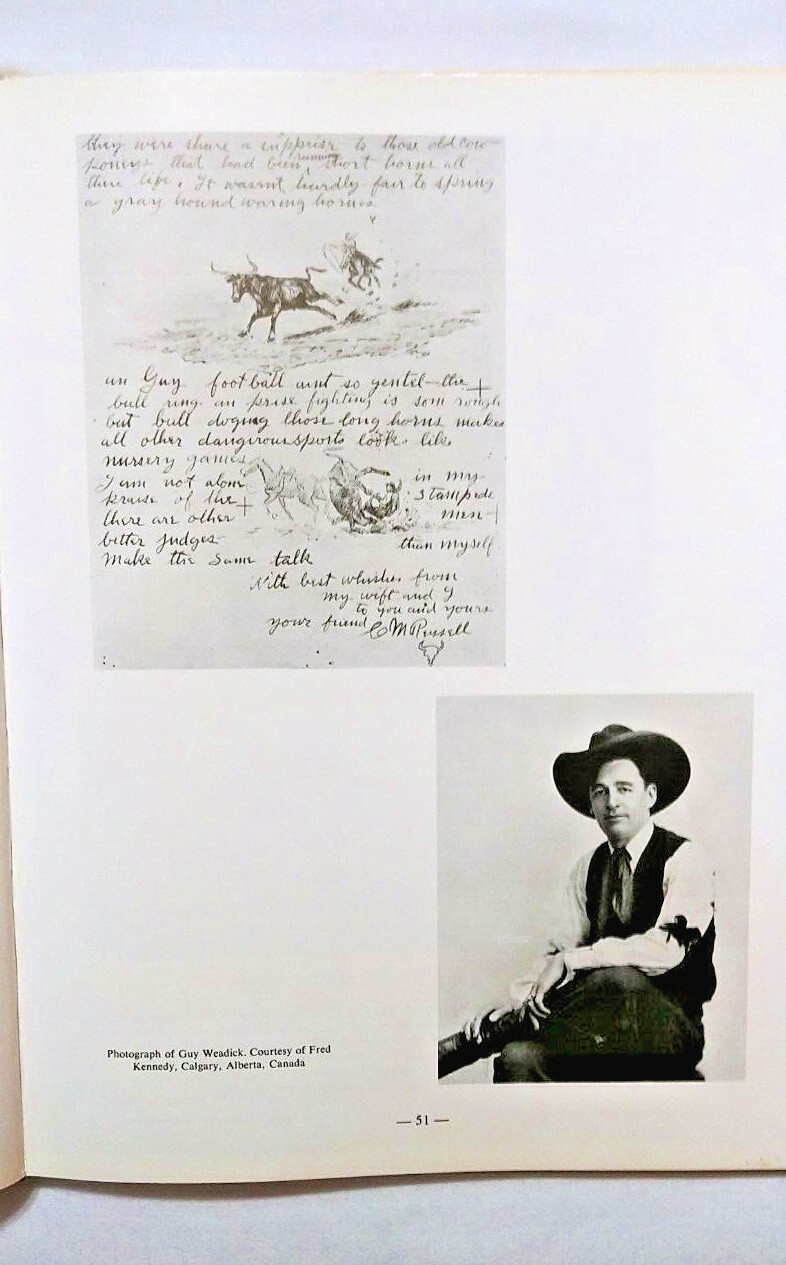 they were shure a supprise to those old cow
poneys that had been running short horns all
thire life. It wasent hardly fair to spring
a gray hound waring hornes.
an Guy foot ball aint so gentel—the
bull ring an prise fighting is som rough
but bull doging those long horns makes
all other dangirous sports look like
nursery games
I am not alone in my
praise of the stampede
there are other men
better judges than myself
make the same talk
With best whishes from
my wift and I
to you and yours
your friend C M Russell
Photograph of Guy Weadick. Courtesy of Fred
Kennedy, Calgary, Alberta, Canada
— 51 —